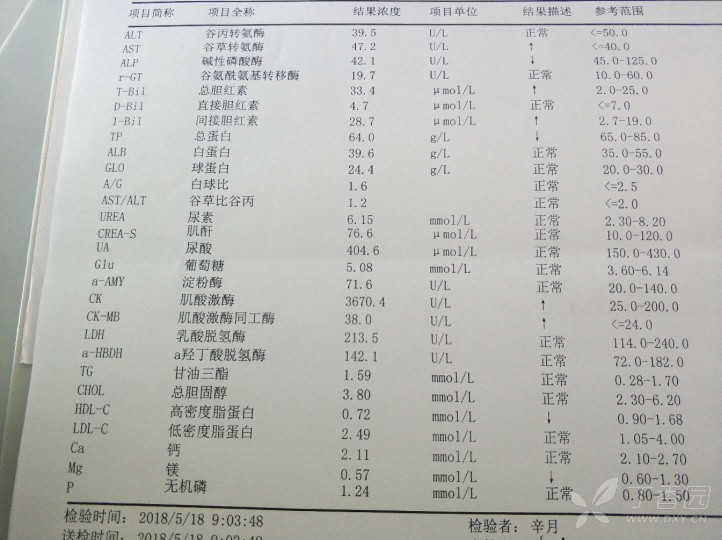 项目简称 项目全称 结果浓度 项目单位 结果描述 参考范围
ALT 谷丙转氨酶 39.5 U/L 正常 <=50.0
AST 谷草转氨酶 47.2 U/L ↑ <=40.0
ALP 碱性磷酸酶 42.1 U/L ↓ 45.0-125.0
r-GT 谷氨酰氨基转移酶 19.7 U/L 正常 10.0-60.0
T-Bil 总胆红素 33.4 μmol/L ↑ 2.0-25.0
D-Bil 直接胆红素 4.7 μmol/L 正常 <=7.0
I-Bil 间接胆红素 28.7 μmol/L ↑ 2.7-19.0
TP 总蛋白 64.0 g/L ↓ 65.0-85.0
ALB 白蛋白 39.6 g/L 正常 35.0-55.0
GLO 球蛋白 24.4 g/L 正常 20.0-30.0
A/G 白球比 1.6 正常 <=2.5
AST/ALT 谷草比谷丙 1.2 正常 <=2.0
UREA 尿素 6.15 mmol/L 正常 2.30-8.20
CREA-S 肌酐 76.6 μmol/L 正常 10.0-120.0
UA 尿酸 404.6 μmol/L 正常 150.0-430.0
Glu 葡萄糖 5.08 mmol/L 正常 3.60-6.14
a-AMY 淀粉酶 71.6 U/L 正常 20.0-140.0
CK 肌酸激酶 3670.4 U/L ↑ 25.0-200.0
CK-MB 肌酸激酶同工酶 38.0 U/L ↑ <=24.0
LDH 乳酸脱氢酶 213.5 U/L 正常 114.0-240.0
a-HBDH a羟丁酸脱氢酶 142.1 U/L 正常 72.0-182.0
TG 甘油三酯 1.59 mmol/L 正常 0.28-1.70
CHOL 总胆固醇 3.80 mmol/L 正常 2.30-6.20
HDL-C 高密度脂蛋白 0.72 mmol/L ↓ 0.90-1.68
LDL-C 低密度脂蛋白 2.49 mmol/L 正常 1.05-4.00
Ca 钙 2.11 mmol/L 正常 2.10-2.70
Mg 镁 0.57 mmol/L ↓ 0.60-1.30
P 无机磷 1.24 mmol/L 正常 0.80-1.50
检验时间: 2018/5/18 9:03:48 检验者: 辛月
送检时间: 2018/5/18 9:03:48
丁香园
WWW.DXY.CN